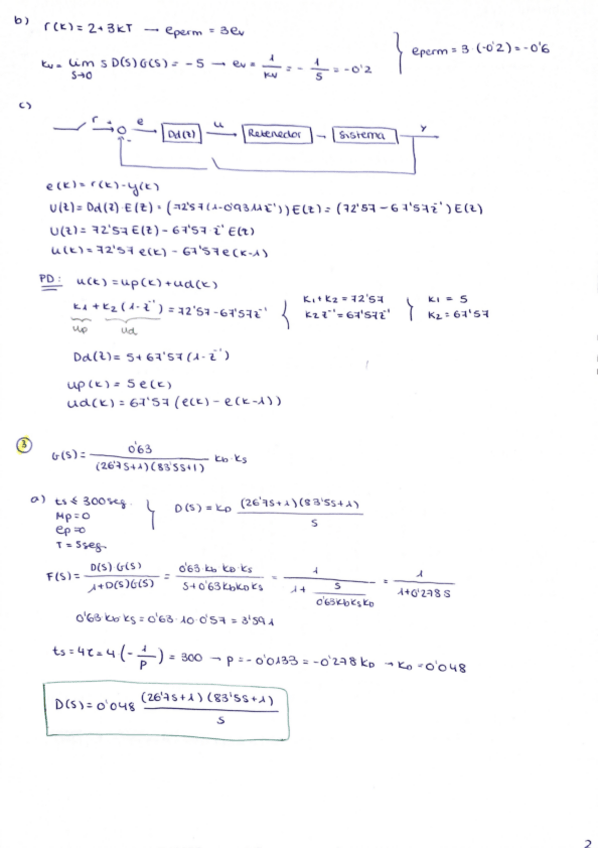 b) r(k) = 2+3kT → eperm = 3ev
kv = lim s D(s) G(s) = -5 → ev = 1/kv = - 1/5 = -0'2 } eperm = 3·(-0'2) = -0'6
s→0
c)
r + - e Dd(z) u Retenedor → Sistema y
e(k) = r(k) - y(k)
U(z) = Dd(z)·E(z) = (72'57(1-0'9311z⁻¹))E(z) = (72'57 - 67'57z⁻¹)E(z)
U(z) = 72'57 E(z) - 67'57 z⁻¹ E(z)
u(k) = 72'57 e(k) - 67'57 e(k-1)
PD: u(k) = up(k) + ud(k)
k1 + k2(1-z⁻¹) = 72'57 - 67'57z⁻¹ { k1+k2 = 72'57 } k1 = 5
up ud k2z⁻¹ = 67'57z⁻¹ k2 = 67'57
Dd(z) = 5 + 67'57(1-z⁻¹)
up(k) = 5 e(k)
ud(k) = 67'57 (e(k) - e(k-1))
3
G(s) = 0'63 / (26'7s+1)(83'5s+1) kb·ks
a) ts ≤ 300seg.
Mp = 0
ep = 0
T = 5seg.
} D(s) = kD (26'7s+1)(83'5s+1) / s
F(s) = D(s) G(s) / 1+D(s)G(s) = 0'63 kb kD ks / s+0'63kbkDks = 1 / 1+ s/0'63kbkskD = 1 / 1+0'278s
0'63 kb ks = 0'63·10·0'57 = 3'591
ts = 4τ = 4(-1/p) = 300 → p = -0'0133 = -0'278 kD → kD = 0'048
D(s) = 0'048 (26'7s+1)(83'5s+1) / s
2